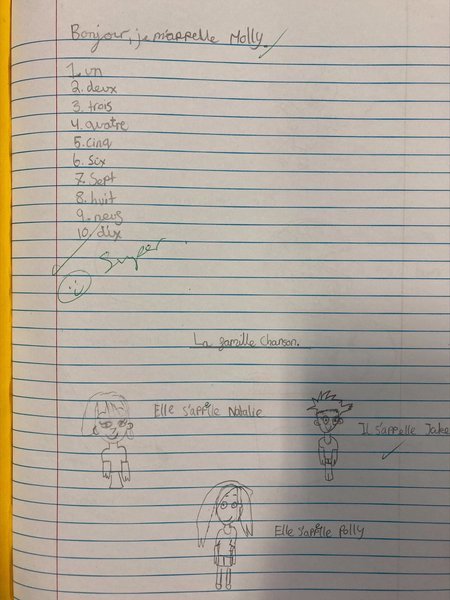 Bonjour, je m'appelle Molly.
1. un
2. deux
3. trois
4. quatre
5. cinq
6. Six
7. Sept
8. huit
9. neuf
10. dix
Super
La famille Chanson.
Elle s'appile Natalie
Il s'appelle Jake
Elle s'appile Polly